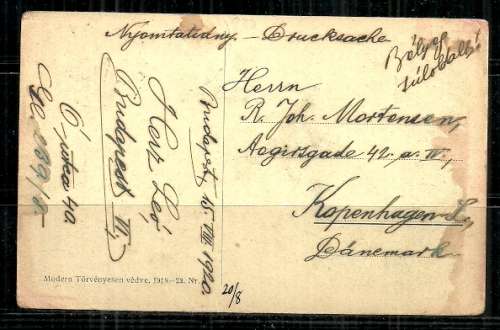 Nyomtatvány. – Drucksache
Bélyeg
túloldalt
Herrn
R. Joh. Mortensen,
Aegirsgade 42. a. IV.
Kopenhagen L.,
Dänemark
Budapest, 15. VIII 1920.
Herz Leó
Budapest VI.
Ó-utca 42
20/8
Modern Törvényesen védve, 1918.–23. Nr.